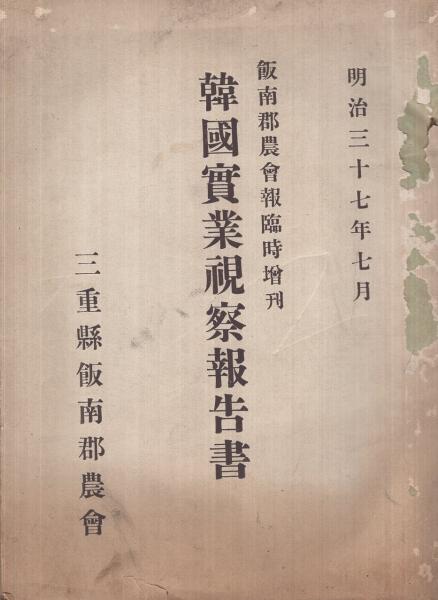 明治三十七年七月
飯南郡農會報臨時增刊
韓國實業視察報告書
三重縣飯南郡農會